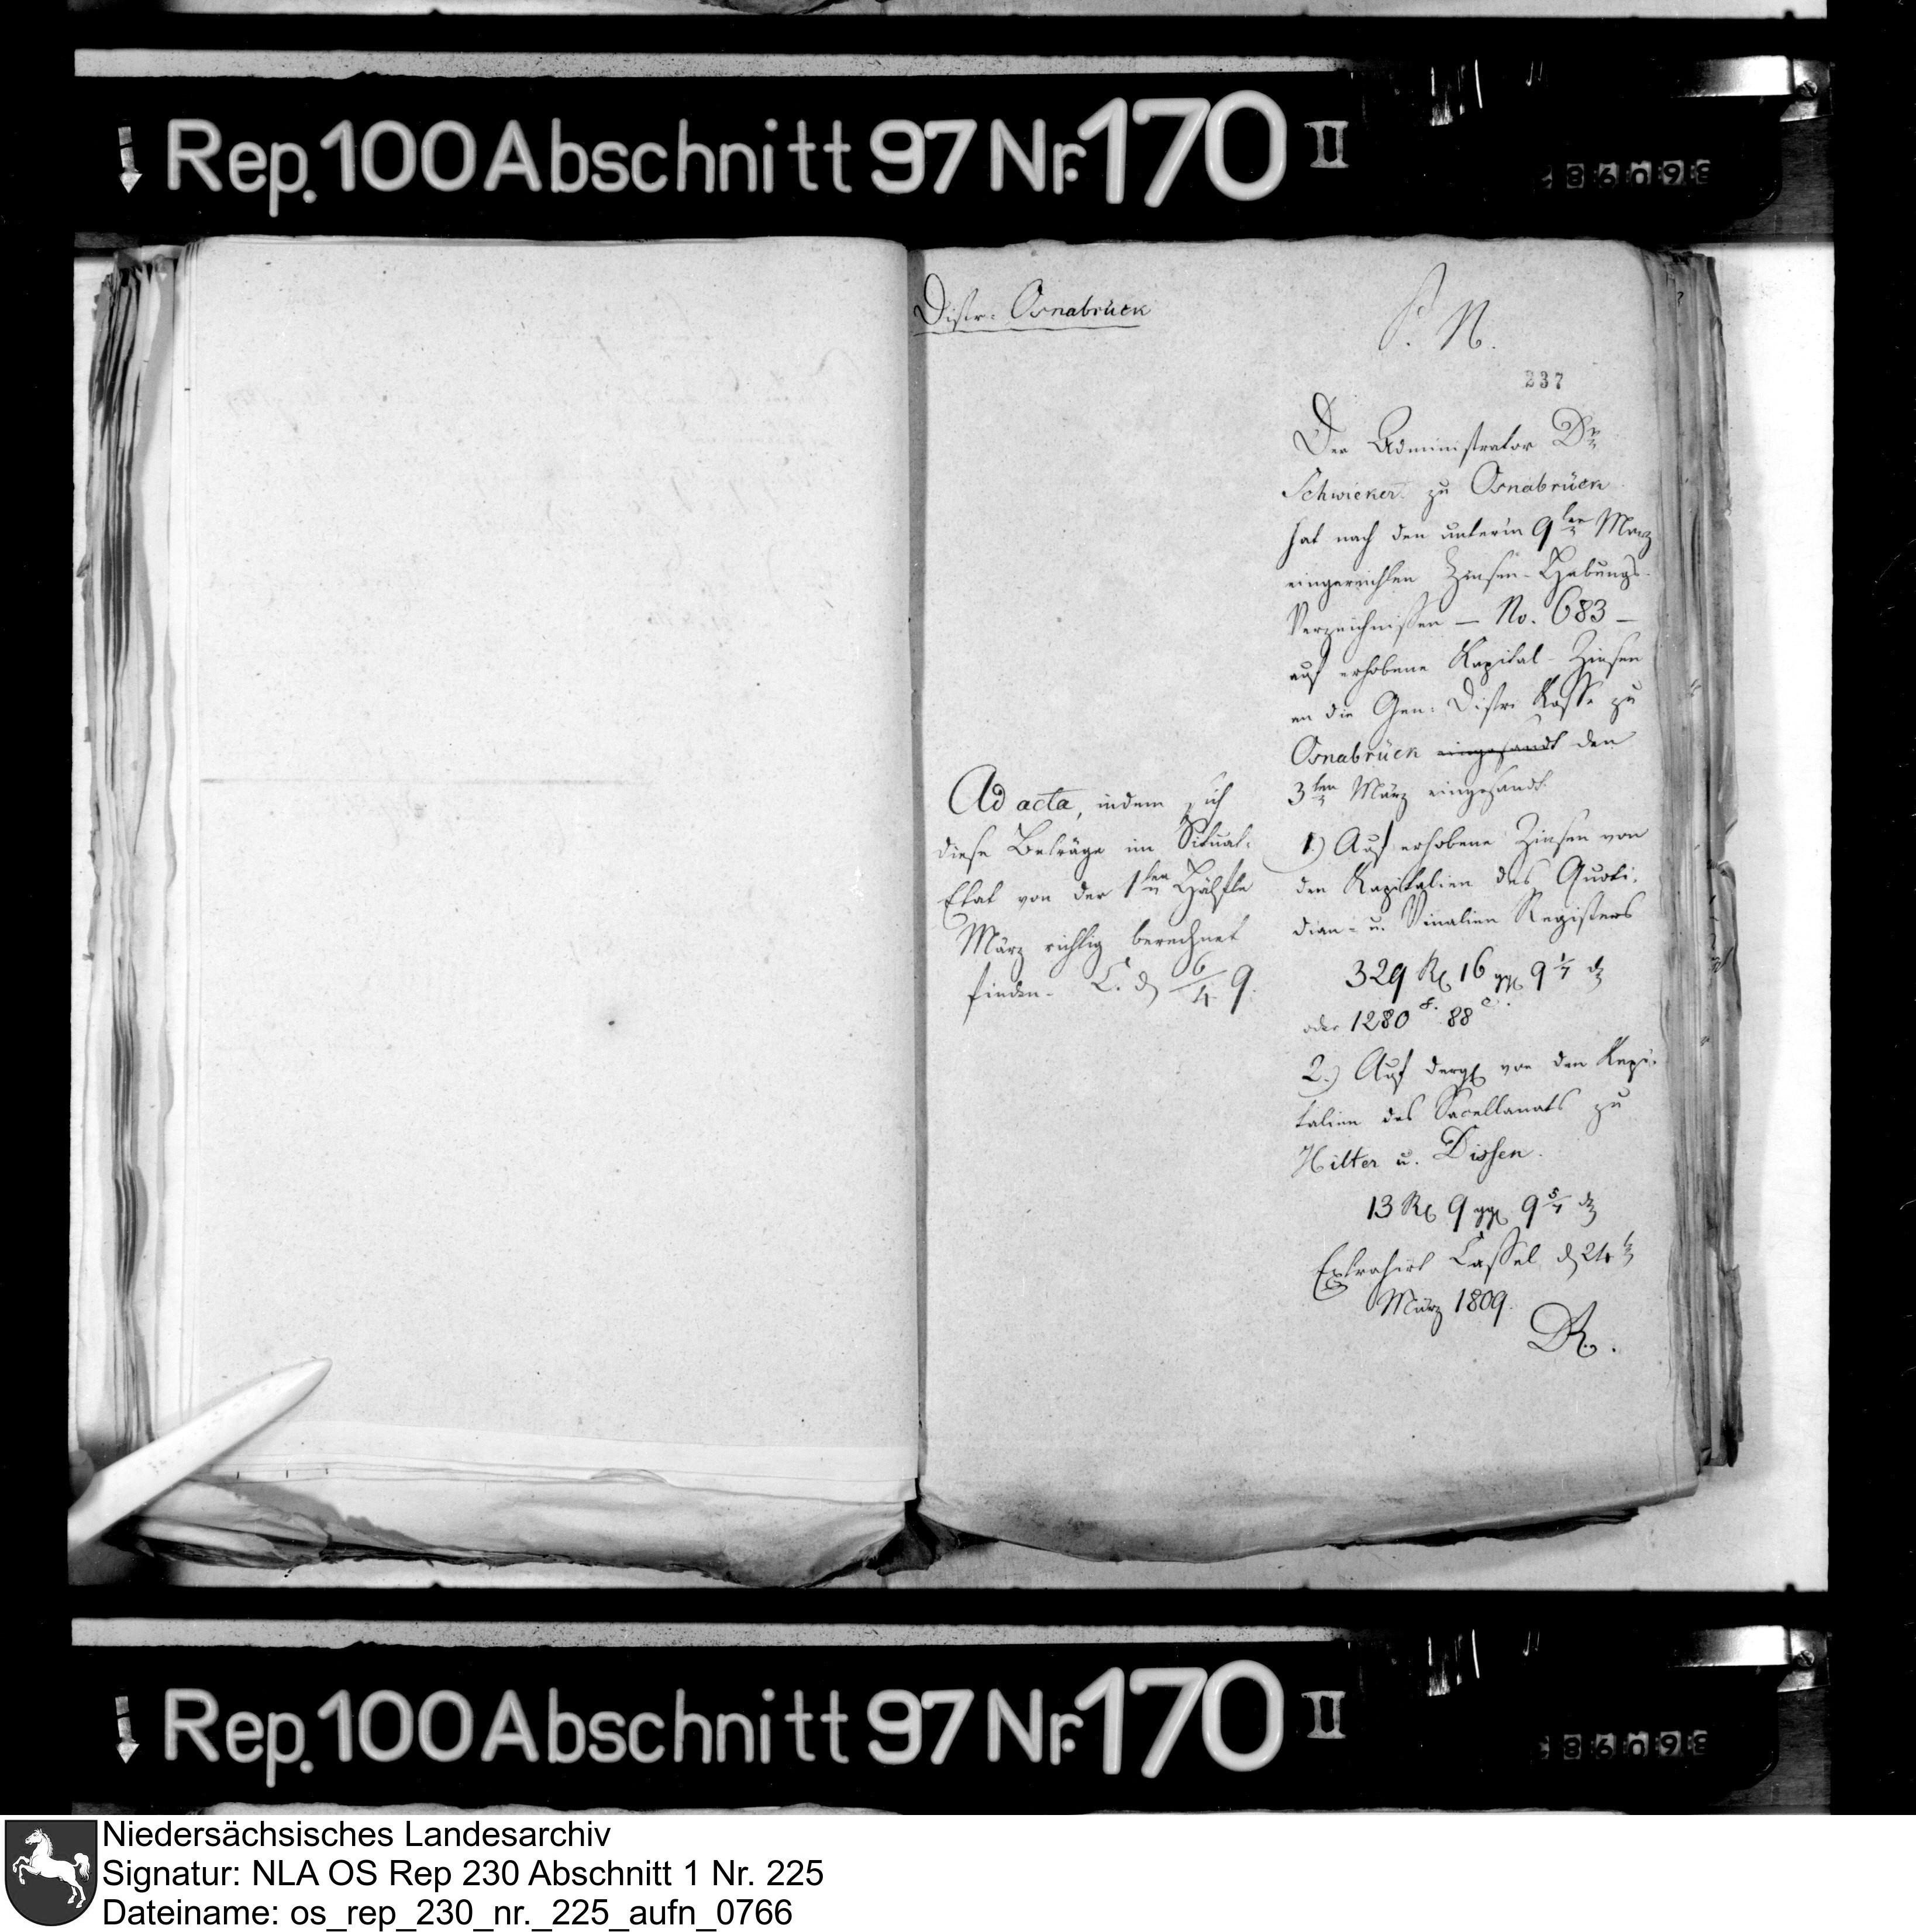 Rep. 100 Abschnitt 97 Nr. 170 II
Distr: Osnabrück
P. N.
237
Der Administrator Dr
Schwicker zu Osnabrück
hat nach den unterm 9ten März
eingereichten Zinsen-Hebungs-
Verzeichnissen — No. 683 —
auf erhobene Kapital-Zinsen
an die Gen: Distr: Kasse zu
Osnabrück eingesandt den
3ten März eingesandt.
1.) Auf erhobene Zinsen von
den Kapitalien des Quoti-
dian- u. Vinalien Registers
329 Rt 16 gg 9 1/7 d
oder 1280 f. 88 c.
2.) Auf dergl von den Kapi-
talien des Sacellanats zu
Hilter u. Dissen.
13 Rt 9 gg 9 5/7 d
Extrahirt Cassel d 24t
März 1809.
DR.
Ad acta, indem sich
diese Beträge im Situat:
Etat von der 1ten Hälfte
März richtig berechnet
finden. C. d 6/4 9.
Rep. 100 Abschnitt 97 Nr. 170 II
Niedersächsisches Landesarchiv
Signatur: NLA OS Rep 230 Abschnitt 1 Nr. 225
Dateiname: os_rep_230_nr._225_aufn_0766